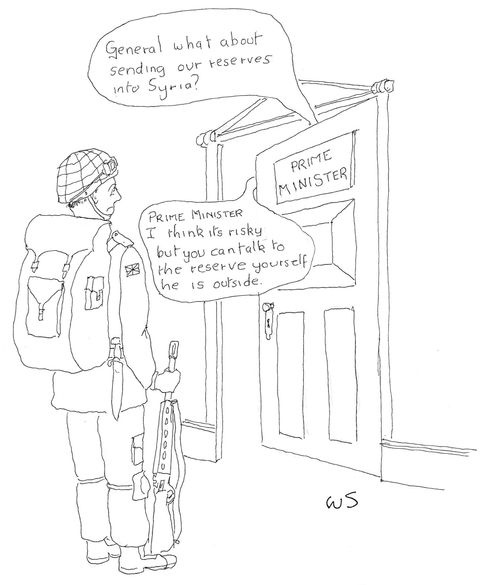 General what about
sending our reserves
into Syria?
PRIME
MINISTER
PRIME MINISTER
I think its risky
but you can talk to
the reserve yourself
he is outside.
WS